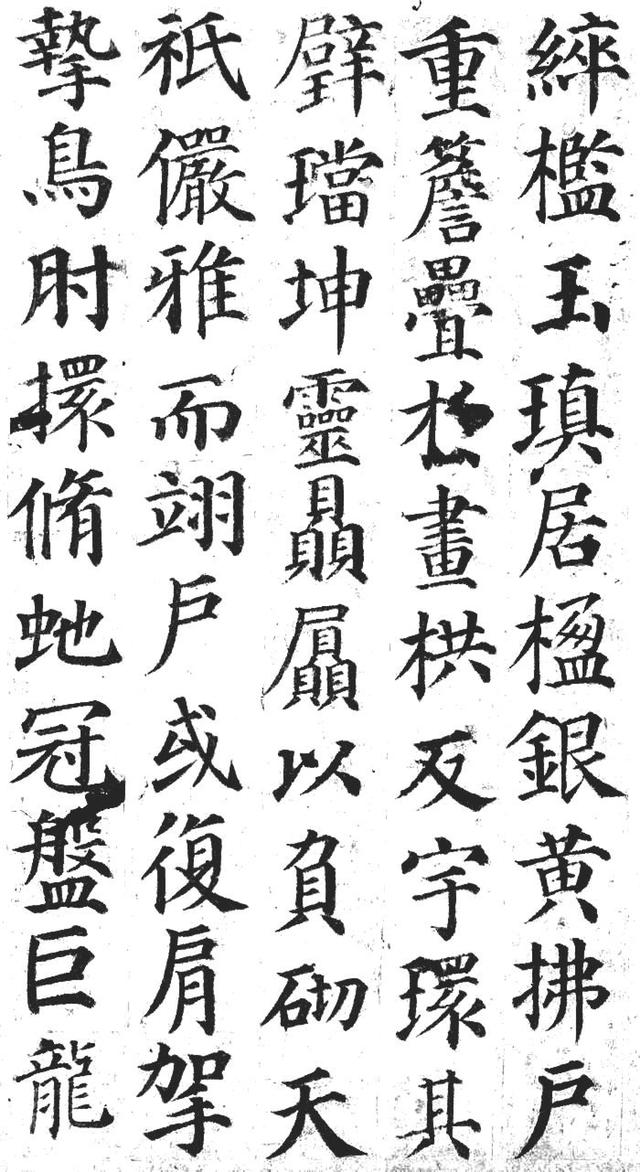 綷檻玉瑱居楹銀黃拂戶
重簷疊畫栱反宇環其
壁璫坤靈贔屭以負砌天
祇儼雅而翊戶或復肩挐
摯鳥肘擐脩虵冠盤巨龍